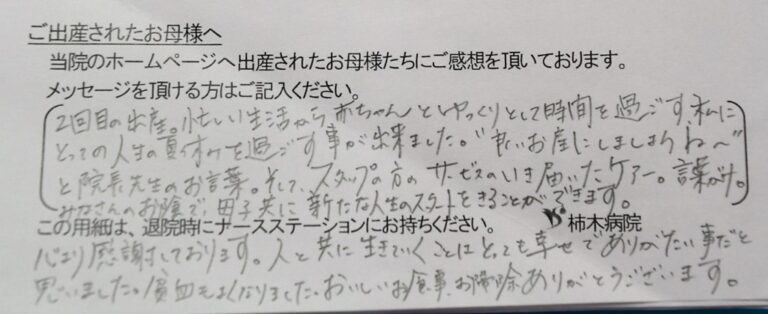 ご出産されたお母様へ
当院のホームページへ出産されたお母様たちにご感想を頂いております。
メッセージを頂ける方はご記入ください。
2回目の出産。忙しい生活から、赤ちゃんとゆっくりとして時間を過ごす、私に
とっての人生の夏休みを過ごす事が出来ました。"良いお産にしましょうね〜"
と院長先生のお言葉。そして、スタッフの方のサービスのいき届いたケアー。言葉がけ。
みなさんのお陰で、母子共に新たな人生のスタートをきることができます。
この用紙は、退院時にナースステーションにお持ちください。 柿木病院
心より感謝しております。人と共に生きていくことはとっても幸せでありがたい事だと
思いました。貧血もよくなりました。おいしいお食事、お掃除ありがとうございます。